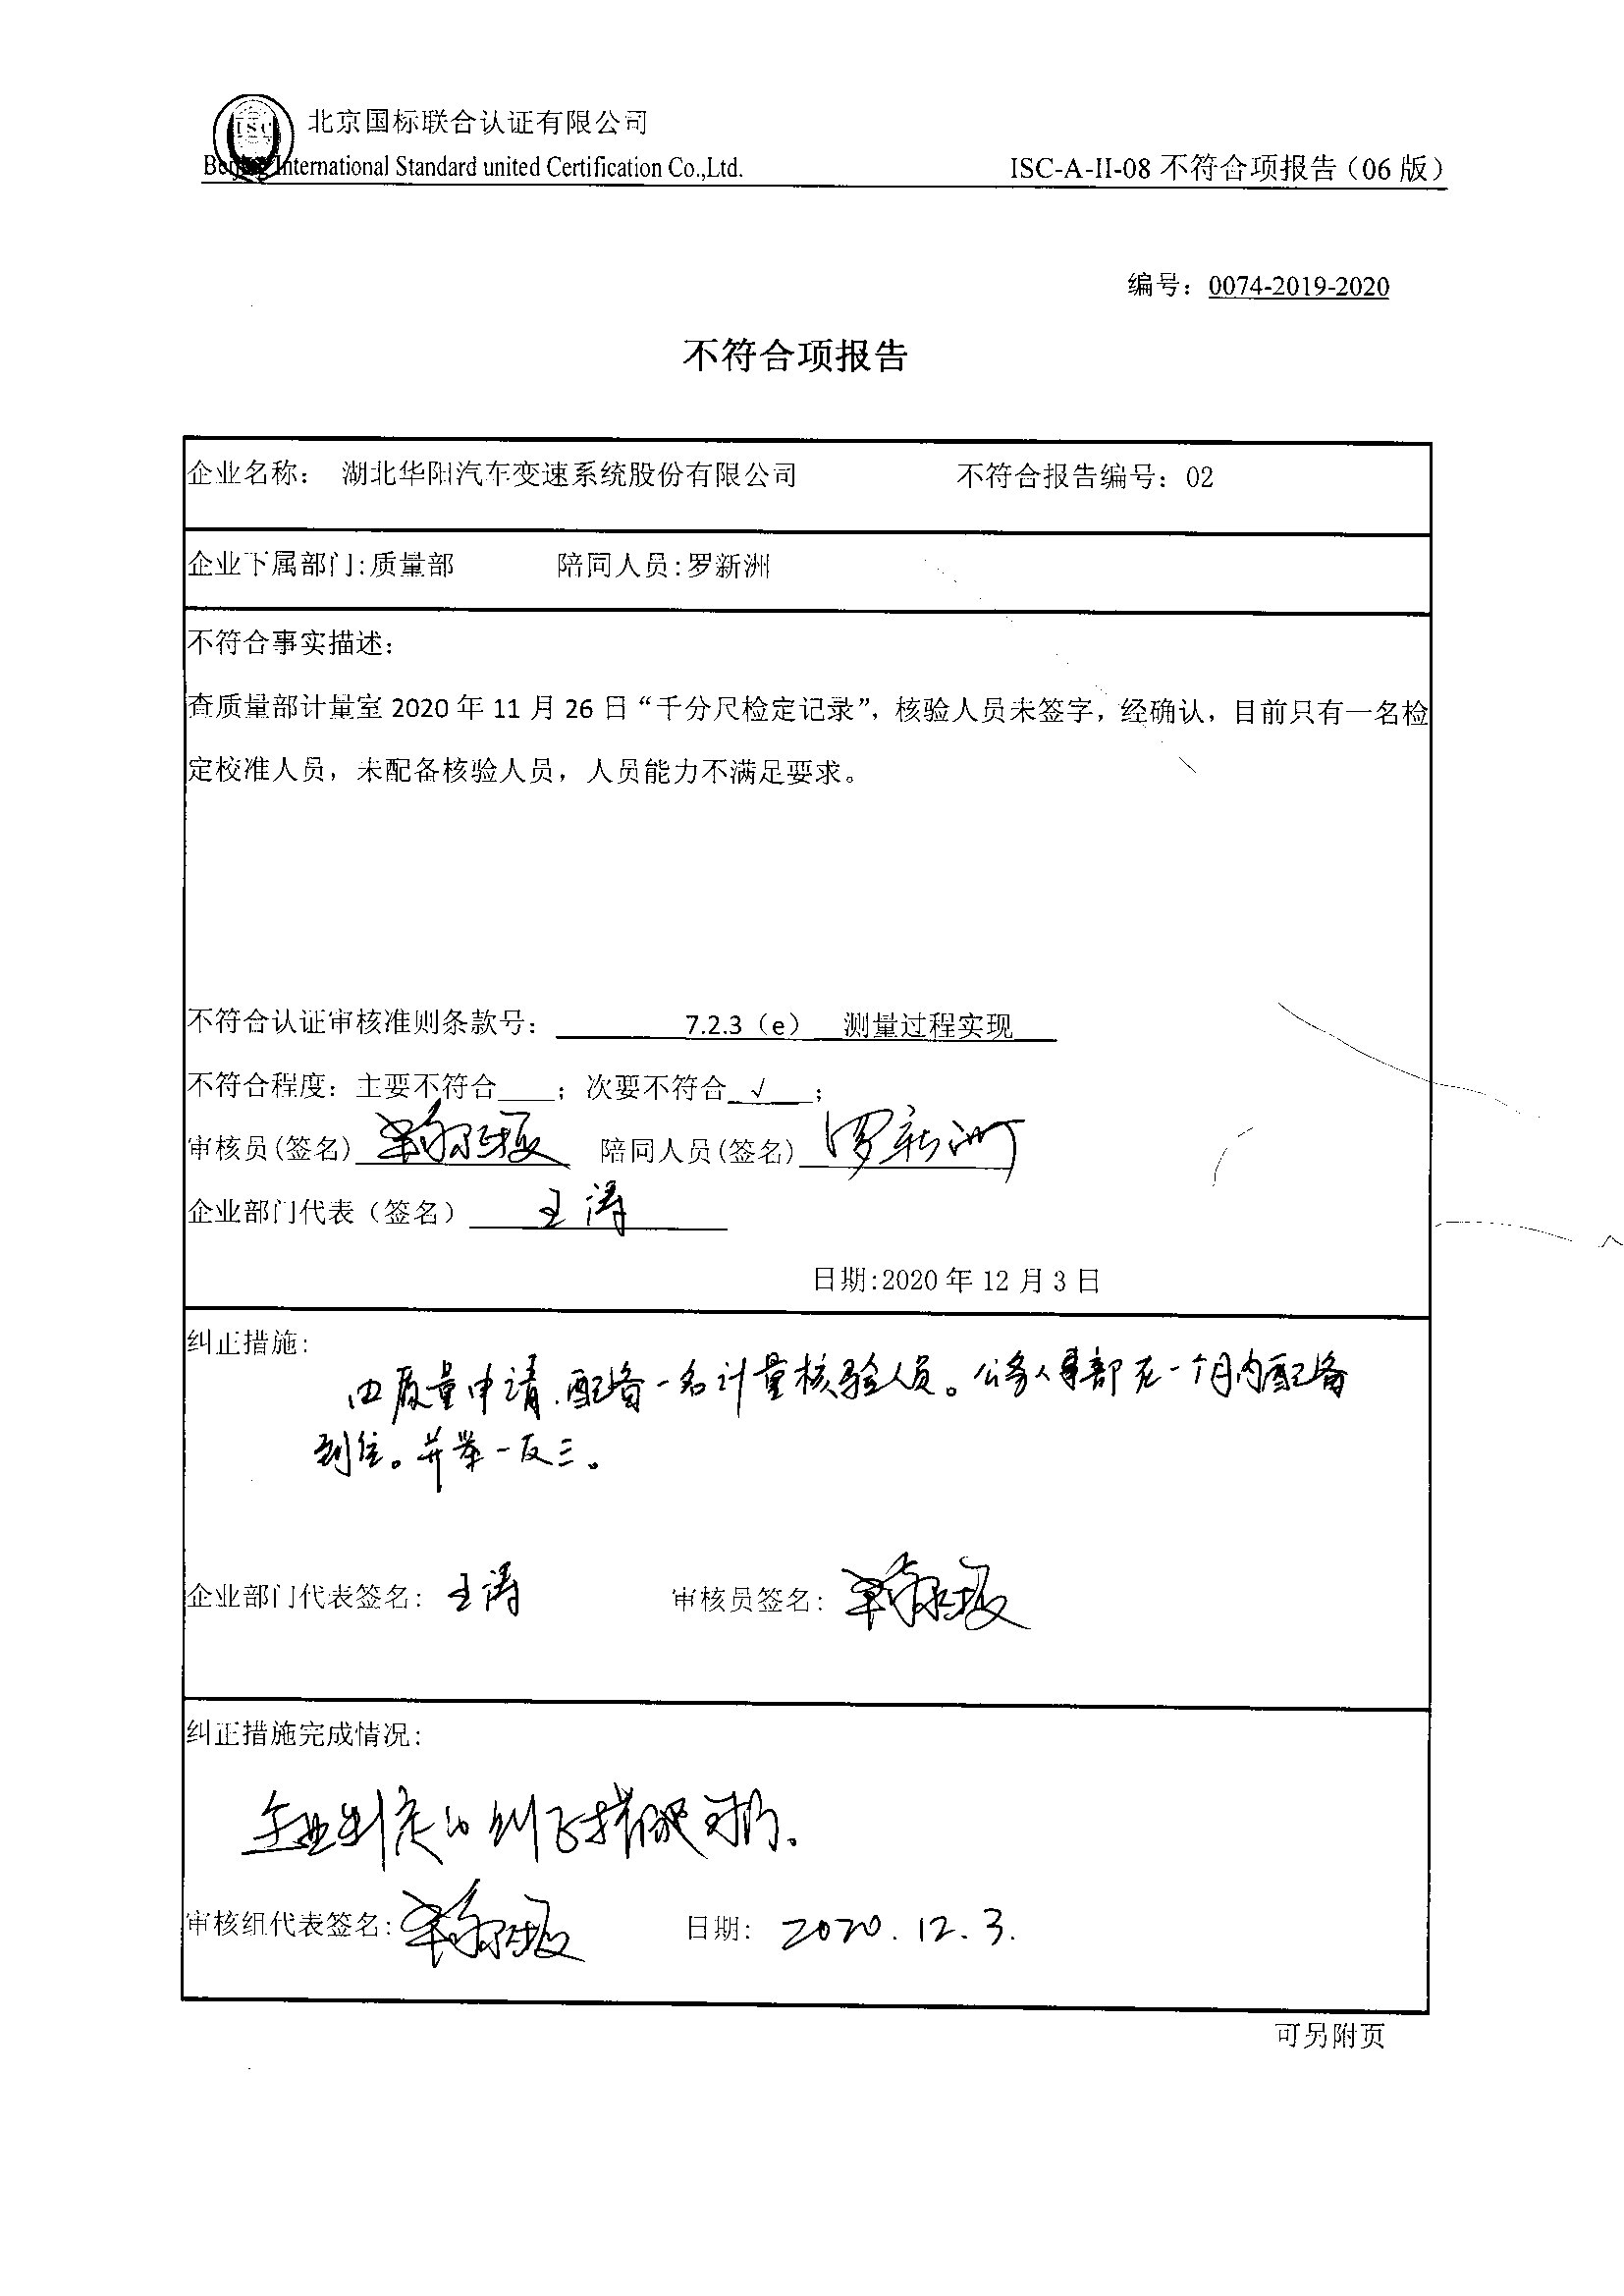 ISC
北京国标联合认证有限公司
Beijing International Standard united Certification Co.,Ltd.
ISC-A-II-08 不符合项报告（06 版）
编号：0074-2019-2020
不符合项报告
企业名称： 湖北华阳汽车变速系统股份有限公司 不符合报告编号：02
企业下属部门:质量部 陪同人员:罗新洲
不符合事实描述：
查质量部计量室 2020 年 11 月 26 日“千分尺检定记录”，核验人员未签字，经确认，目前只有一名检
定校准人员，未配备核验人员，人员能力不满足要求。
不符合认证审核准则条款号： 7.2.3（e） 测量过程实现
不符合程度：主要不符合____；次要不符合 √ ；
审核员(签名) 陪同人员(签名) 罗新洲
企业部门代表（签名） 王涛
日期:2020 年 12 月 3 日
纠正措施:
由质量申请.配备一名计量核验人员。公务人事部在一个月内配备
到位。并举一反三。
企业部门代表签名: 王涛 审核员签名:
纠正措施完成情况:
企业制定的纠正措施可行.
审核组代表签名: 日期: 2020.12.3.
可另附页